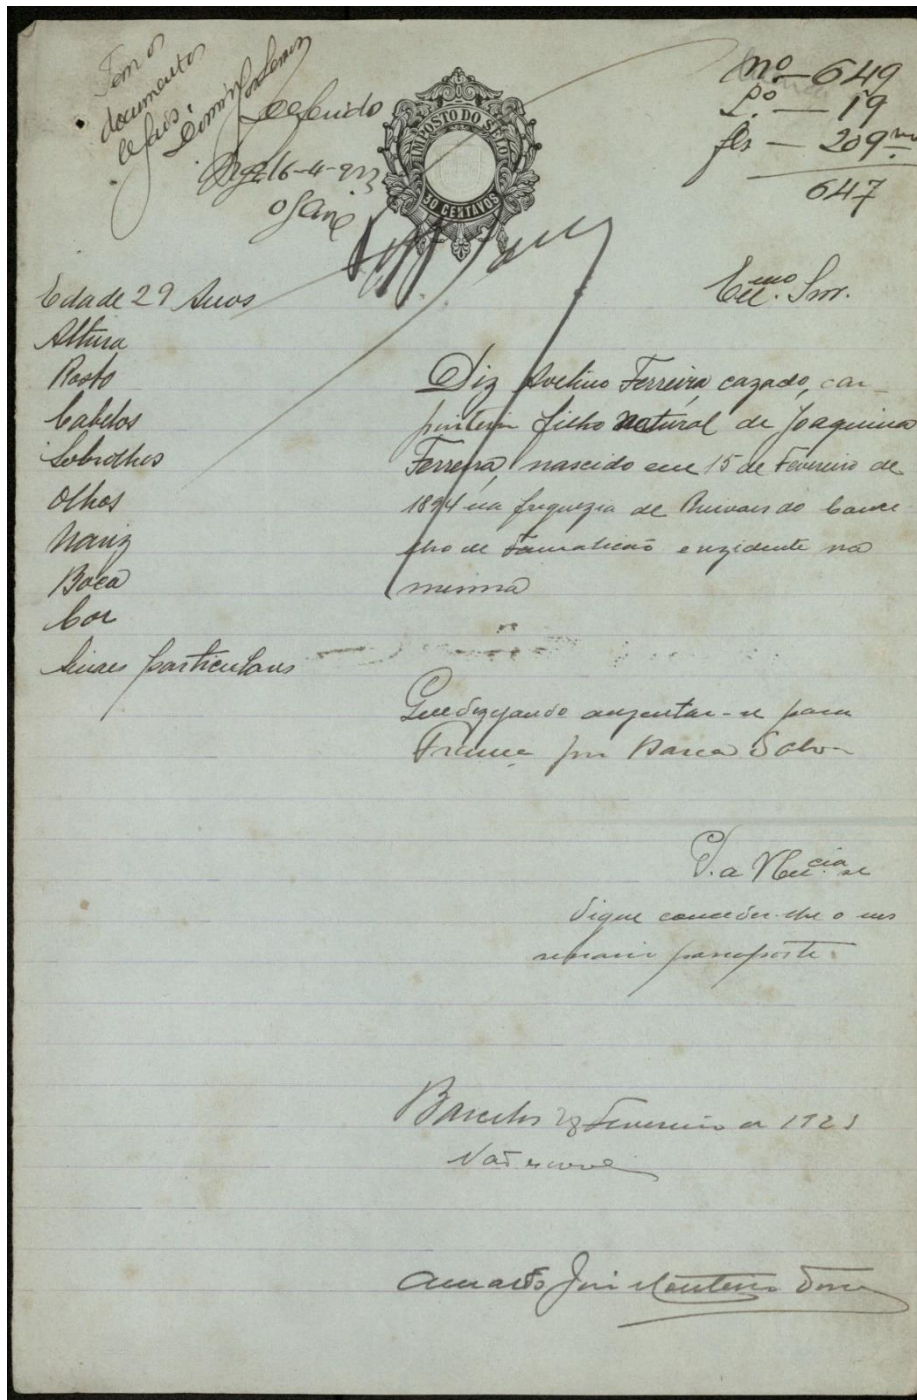 Tem os
documentos
legais.
Deferido
Braga 16-4-923
IMPOSTO DO SELO
50 CENTAVOS
Nº - 649
Lº - 19
fls - 209
647
Edade 29 Anos
Altura
Rosto
Cabelos
Sobrolhos
Olhos
Nariz
Boca
Cor
Sinaes particulares
Exmo. Snr.
Diz Avelino Ferreira, cazado, car-
pinteiro filho natural de Joaquina
Ferreira, nascido em 15 de Fevereiro de
1894 na freguezia de Ruivães do Conce
lho de Famalicão e rezidente na
mesma
Que dezejando auzentar-se para
França por Barca Dalva
P. a V Excia se
digne conceder-lhe o nes
sessario passaporte.
Barcelos 23 Fevereiro de 1923
Não escreve
José Monteiro